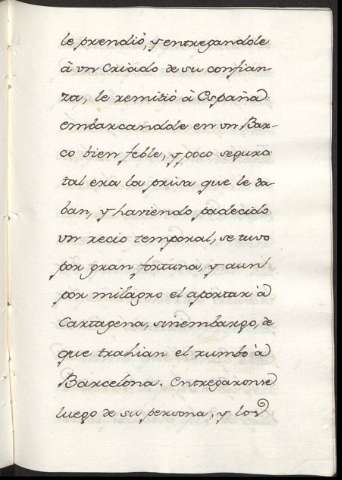 le prendió, y entregandole
à vn Criado de su confian-
za, le remitió à España
embarcandole en vn Bar-
co bien feble, y poco seguro
tal era la prisa que le da-
ban, y haviendo padecido
vn recio temporal, se tuvo
por gran fortuna, y aun
por milagro el aportar à
Cartagena, sinembargo, de
que trahian el rumbo à
Barcelona. Entregaronse
luego de su persona, y los